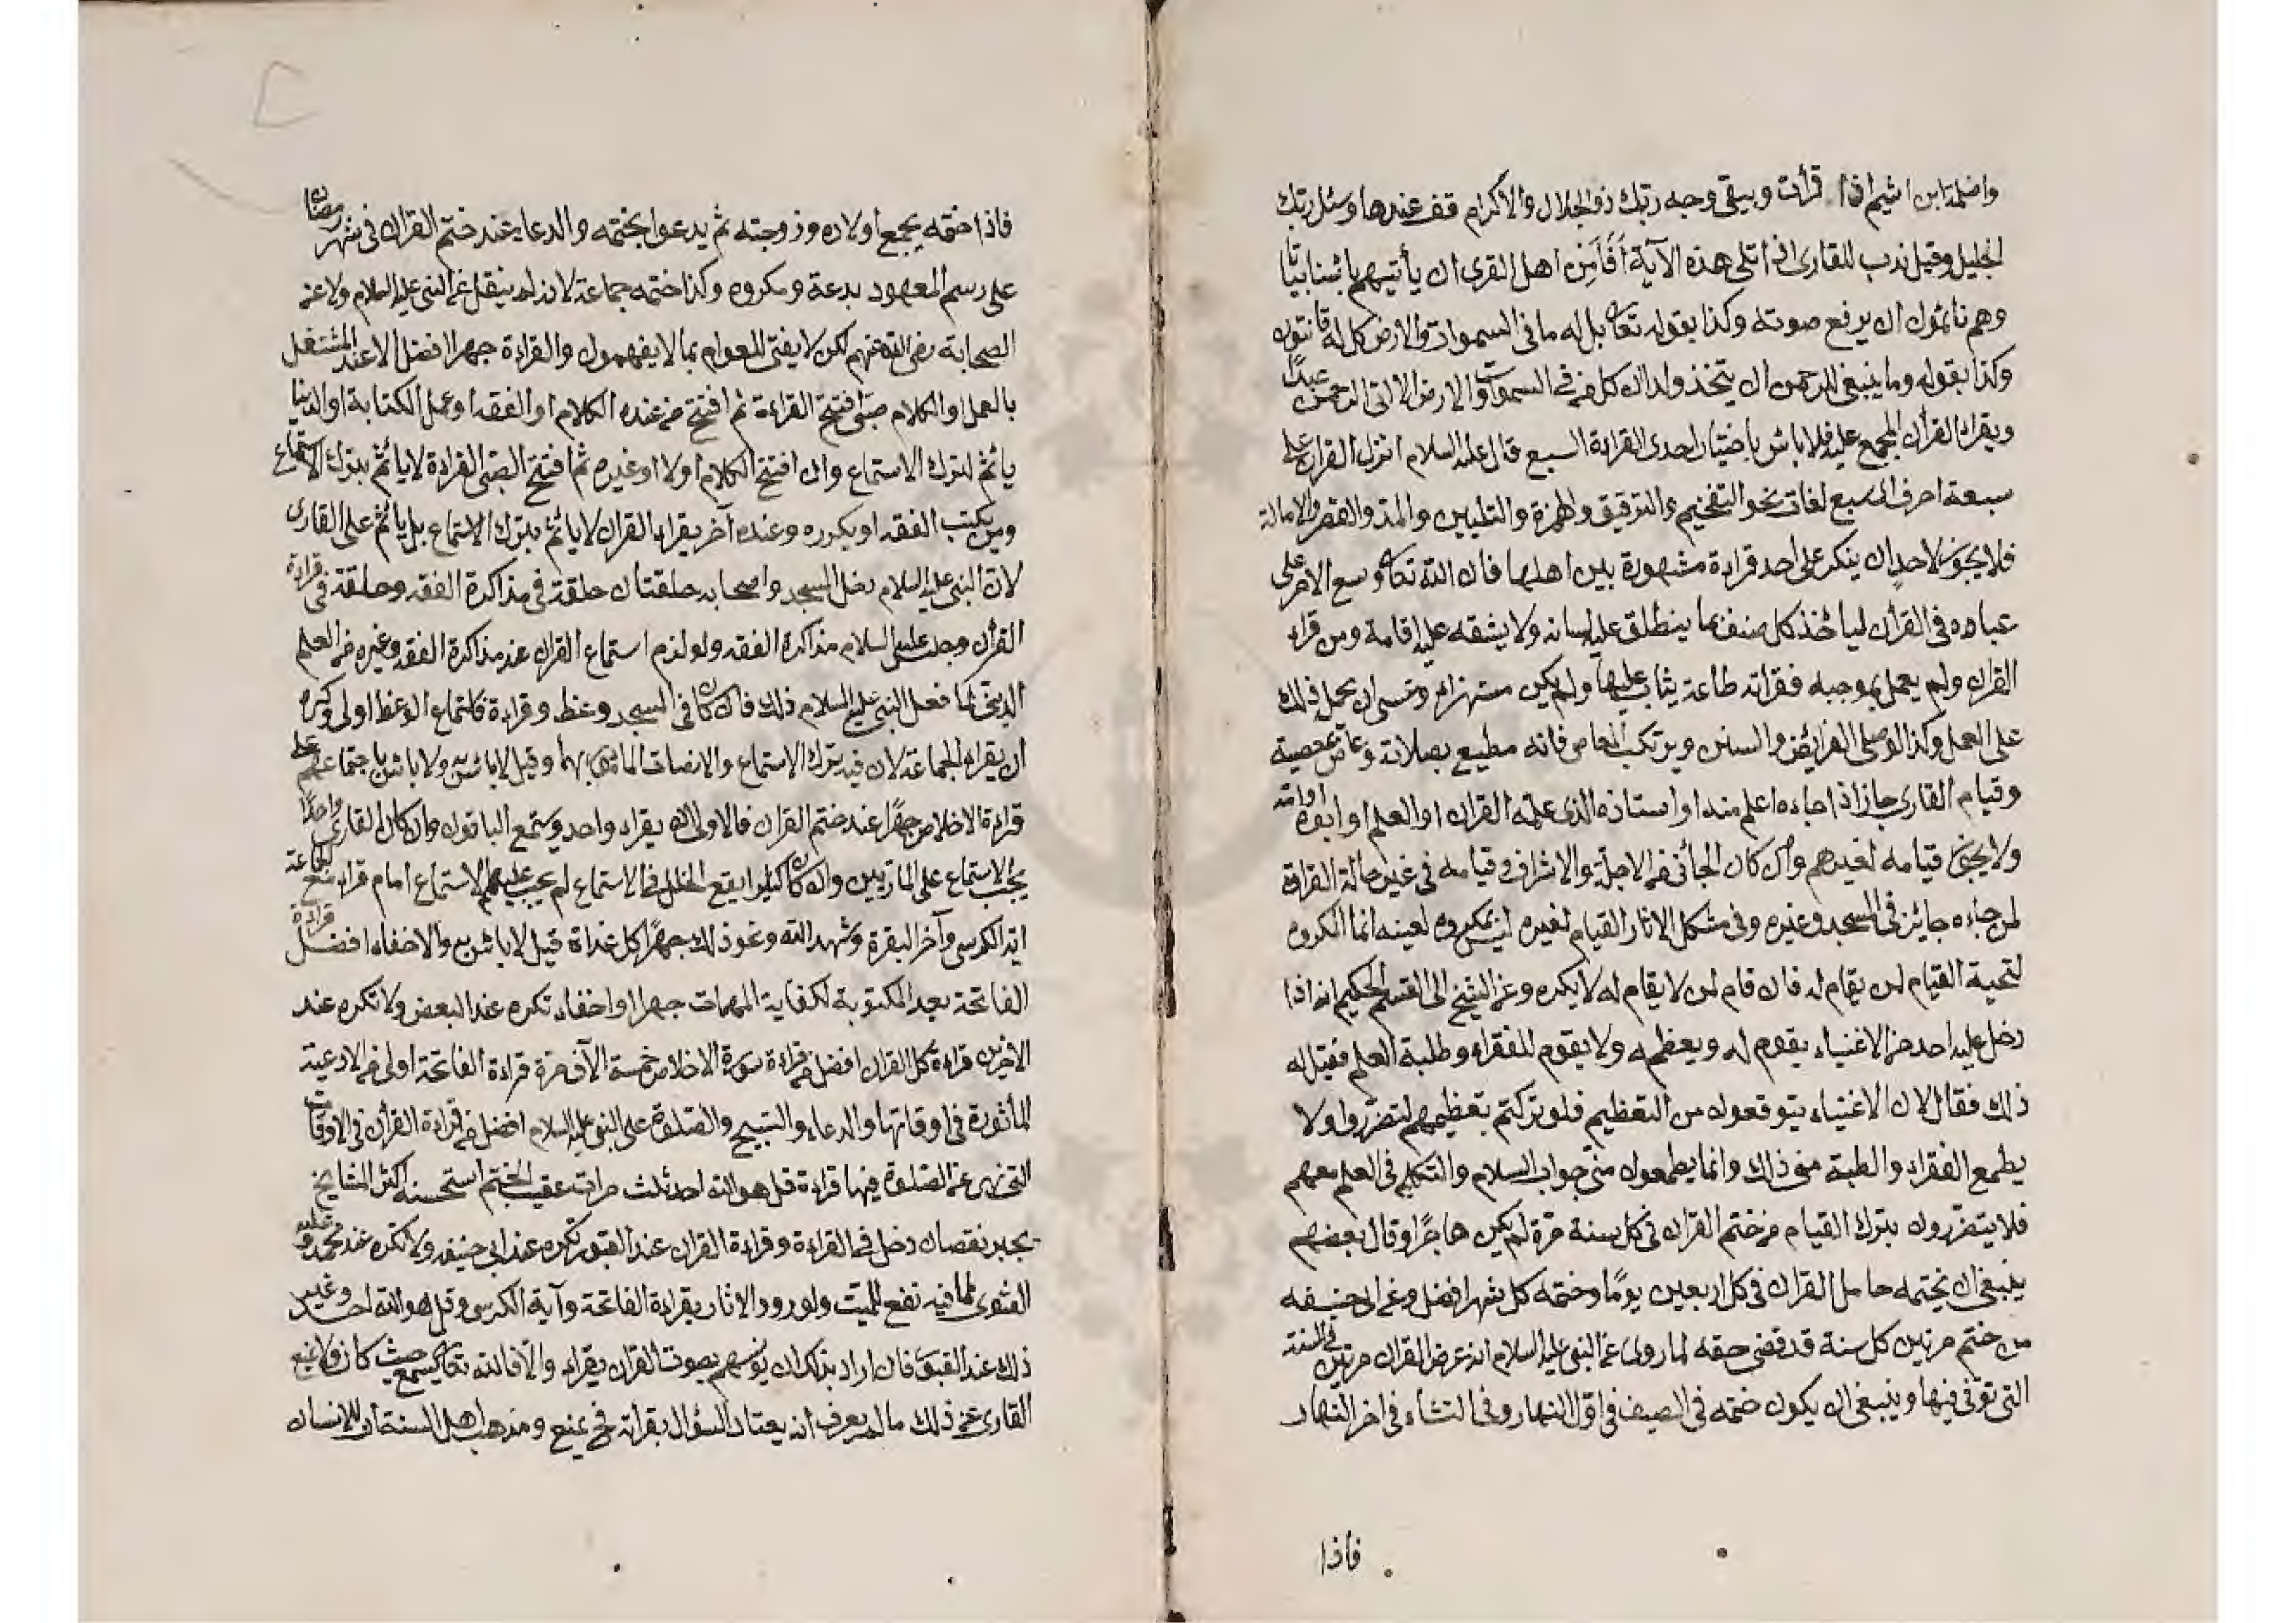 قرأت ويبقى وجه ربك ذو الجلال والاكرام قف عندها وسئل ربك
الجليل وقيل ندب للقارى اذا تلى هذه الآية أفأمن اهل القرى ان يأتيهم باسنا بياتا
وهم نائمون ان يرفع صوته وكذا بقوله تعالى بل له ما فى السموات والارض كل له قانتون
وكذا بقوله وما ينبغى للرحمن ان يتخذ ولدا ان كل من فى السموات والارض الا اتى الرحمن عبدًا
ويقراء القرآن المجمع عليه فلا باس باختيار احدى القراءة السبع قال عليه السلام انزل القران على
سبعة احرف اى سبع لغات نحو التفخيم والترقيق والهمزة والتليين والمد والقصر والامالة
فلا يجوز لاحد ان ينكر على احد قراءة مشهورة بين اهلها فان الله تعالى وسع الامر على
عباده فى القرآن ليأخذ كل صنف بما ينطلق عليه لسانه ولا يشقه عليه اقامة ومن قراء
القران ولم يعمل بموجبه فقرائته طاعة يثاب عليها ولم يكن مستهزاء وعسى ان يحمل ذلك
على العمل وكذا لو صلى الفرايض والسنن ويرتكب المعاصى فانه مطيع بصلاته وعاص بمعصية
وقيام القارى جاز اذا جاءه اعلم منه او استاذه الذى علمه القران او العلم او ابوه او امه
ولا يجوز قيامه لغيرهم وان كان الجائى من الاجلة والاشراف وقيامه فى غير حالة القراءة
لمن جاءه جائز فى المسجد وغيره وفى مشكل الاثار القيام لغيره ليس بمكروه لعينه انما المكروه
لتحية القيام لمن يقام له فان قام لمن لا يقام له لا يكره وعن الشيخ ابى القسم الحكيم انه اذا
دخل عليه احد من الاغنياء يقوم له ويعظمه ولا يقوم للفقراء وطلبة العلم فقيل له
ذلك فقال لان الاغنياء يتوقعون من التعظيم فلو تركتم تعظيمهم لتضرروا ولا
يطمع الفقراء والطبة منى ذلك وانما يطمعون منى جواب السلام والتكلم فى العلم معهم
فلا يتضررون بترك القيام من ختم القران فى كل سنة مرة لم يكن هاجرا وقال بعضهم
ينبغى ان يختمه حامل القران فى كل اربعين يومًا وختمه كل شهر افضل وعن ابى حنيفه
من ختم مرتين كل سنة قد قضى حقه لما روى عن النبى عليه السلام انه عرض القران مرتين فى السنة
التى توفى فيها وينبغى ان يكون ختمه فى الصيف فى اوّل النهار وفى الشتاء فى اخر النهار
فاذا
فاذا ختمه يجمع اولاده وزوجته ثم يدعوا بختمه والدعاء عند ختم القران فى شهر رمضان
على رسم المعهود بدعة ومكروه وكذا ختمه جماعة لانه لم ينقل عن النبى عليه السلام ولا عن
الصحابة رضى الله عنهم لكن لا يفتى للعوام بما لا يفهمون والقراءة جهرا افضل الا عند المشتغل
بالعمل او الكلام صبى افتتح القراءة ثم افتتح من عنده الكلام او الفقه او عمل الكتابة او الدنيا
يأثم لترك الاستماع وان افتتح الكلام اولا او غيره ثم افتتح الصبى القراءة لا يأثم بترك الاستماع
ومن يكتب الفقه او يكرره وعنده آخر يقراء القران لا يأثم بترك الاستماع بل يأثم على القارى
لان النبى عليه السلام دخل المسجد واصحابه حلقتان حلقة فى مذاكرة الفقه وحلقة فى قراءة
القرآن وجلس عليه السلام مذاكرة الفقه ولو لزم استماع القران عند مذاكرة الفقه وغيره من العلم
الدينى لما فعل النبى عليه السلام ذلك فان كان فى المسجد وعظ وقراءة فاستماع الوعظ اولى وكره
ان يقراء الجماعة لان فيه ترك الاستماع والانصات المامور بهما وقيل لا باس به ولا باس باجتماعهم على
قراءة الاخلاص جهرًا عند ختم القران فالاولى ان يقراء واحد ويستمع الباقون وان كان القارى واحدًا
يجب الاستماع على المارّين وان كان كثيرا يقع الخلل فى الاستماع لم يجب عليهم الاستماع امام قراء مع الجماعة
اية الكرسى وآخر البقرة وشهد الله ونحو ذلك جهرًا كل غداة قيل لا باس به والاخفاء افضل قراءة
الفاتحة بعد المكتوبة لكفاية المهمات جهرا او اخفاء تكره عند البعض ولا تكره عند
الآخرين قراءة كل القران افضل من قراءة سورة الاخلاص خمسة الآف مرة قراءة الفاتحة اولى من الادعية
المأثورة فى اوقاتها والدعاء والتسبيح والصلوة على النبى عليه السلام افضل من قراءة القرآن فى الاوقات
التى نهى عن الصلوة فيها قراءة قل هو الله احد ثلث مرات عقيب الختم استحسنه اكثر المشايخ
يجبر نقصان دخل فى القراءة وقراءة القران عند القبور تكره عند ابى حنيفه ولا تكره عند محمد وعليه
الفتوى لما فيه نفع للميت ولورود الاثار بقراءة الفاتحة وآية الكرسى وقل هو الله احد وغير
ذلك عند القبور فان اراد بذلك ان يونسهم بصوت القران يقراء والا فالله تعالى يسمع حيث كان ولا يمنع
القارى عن ذلك ما لم يعرف انه يعتاد السؤال بقرائة فح يمنع ومذهب اهل السنة ان للانسان